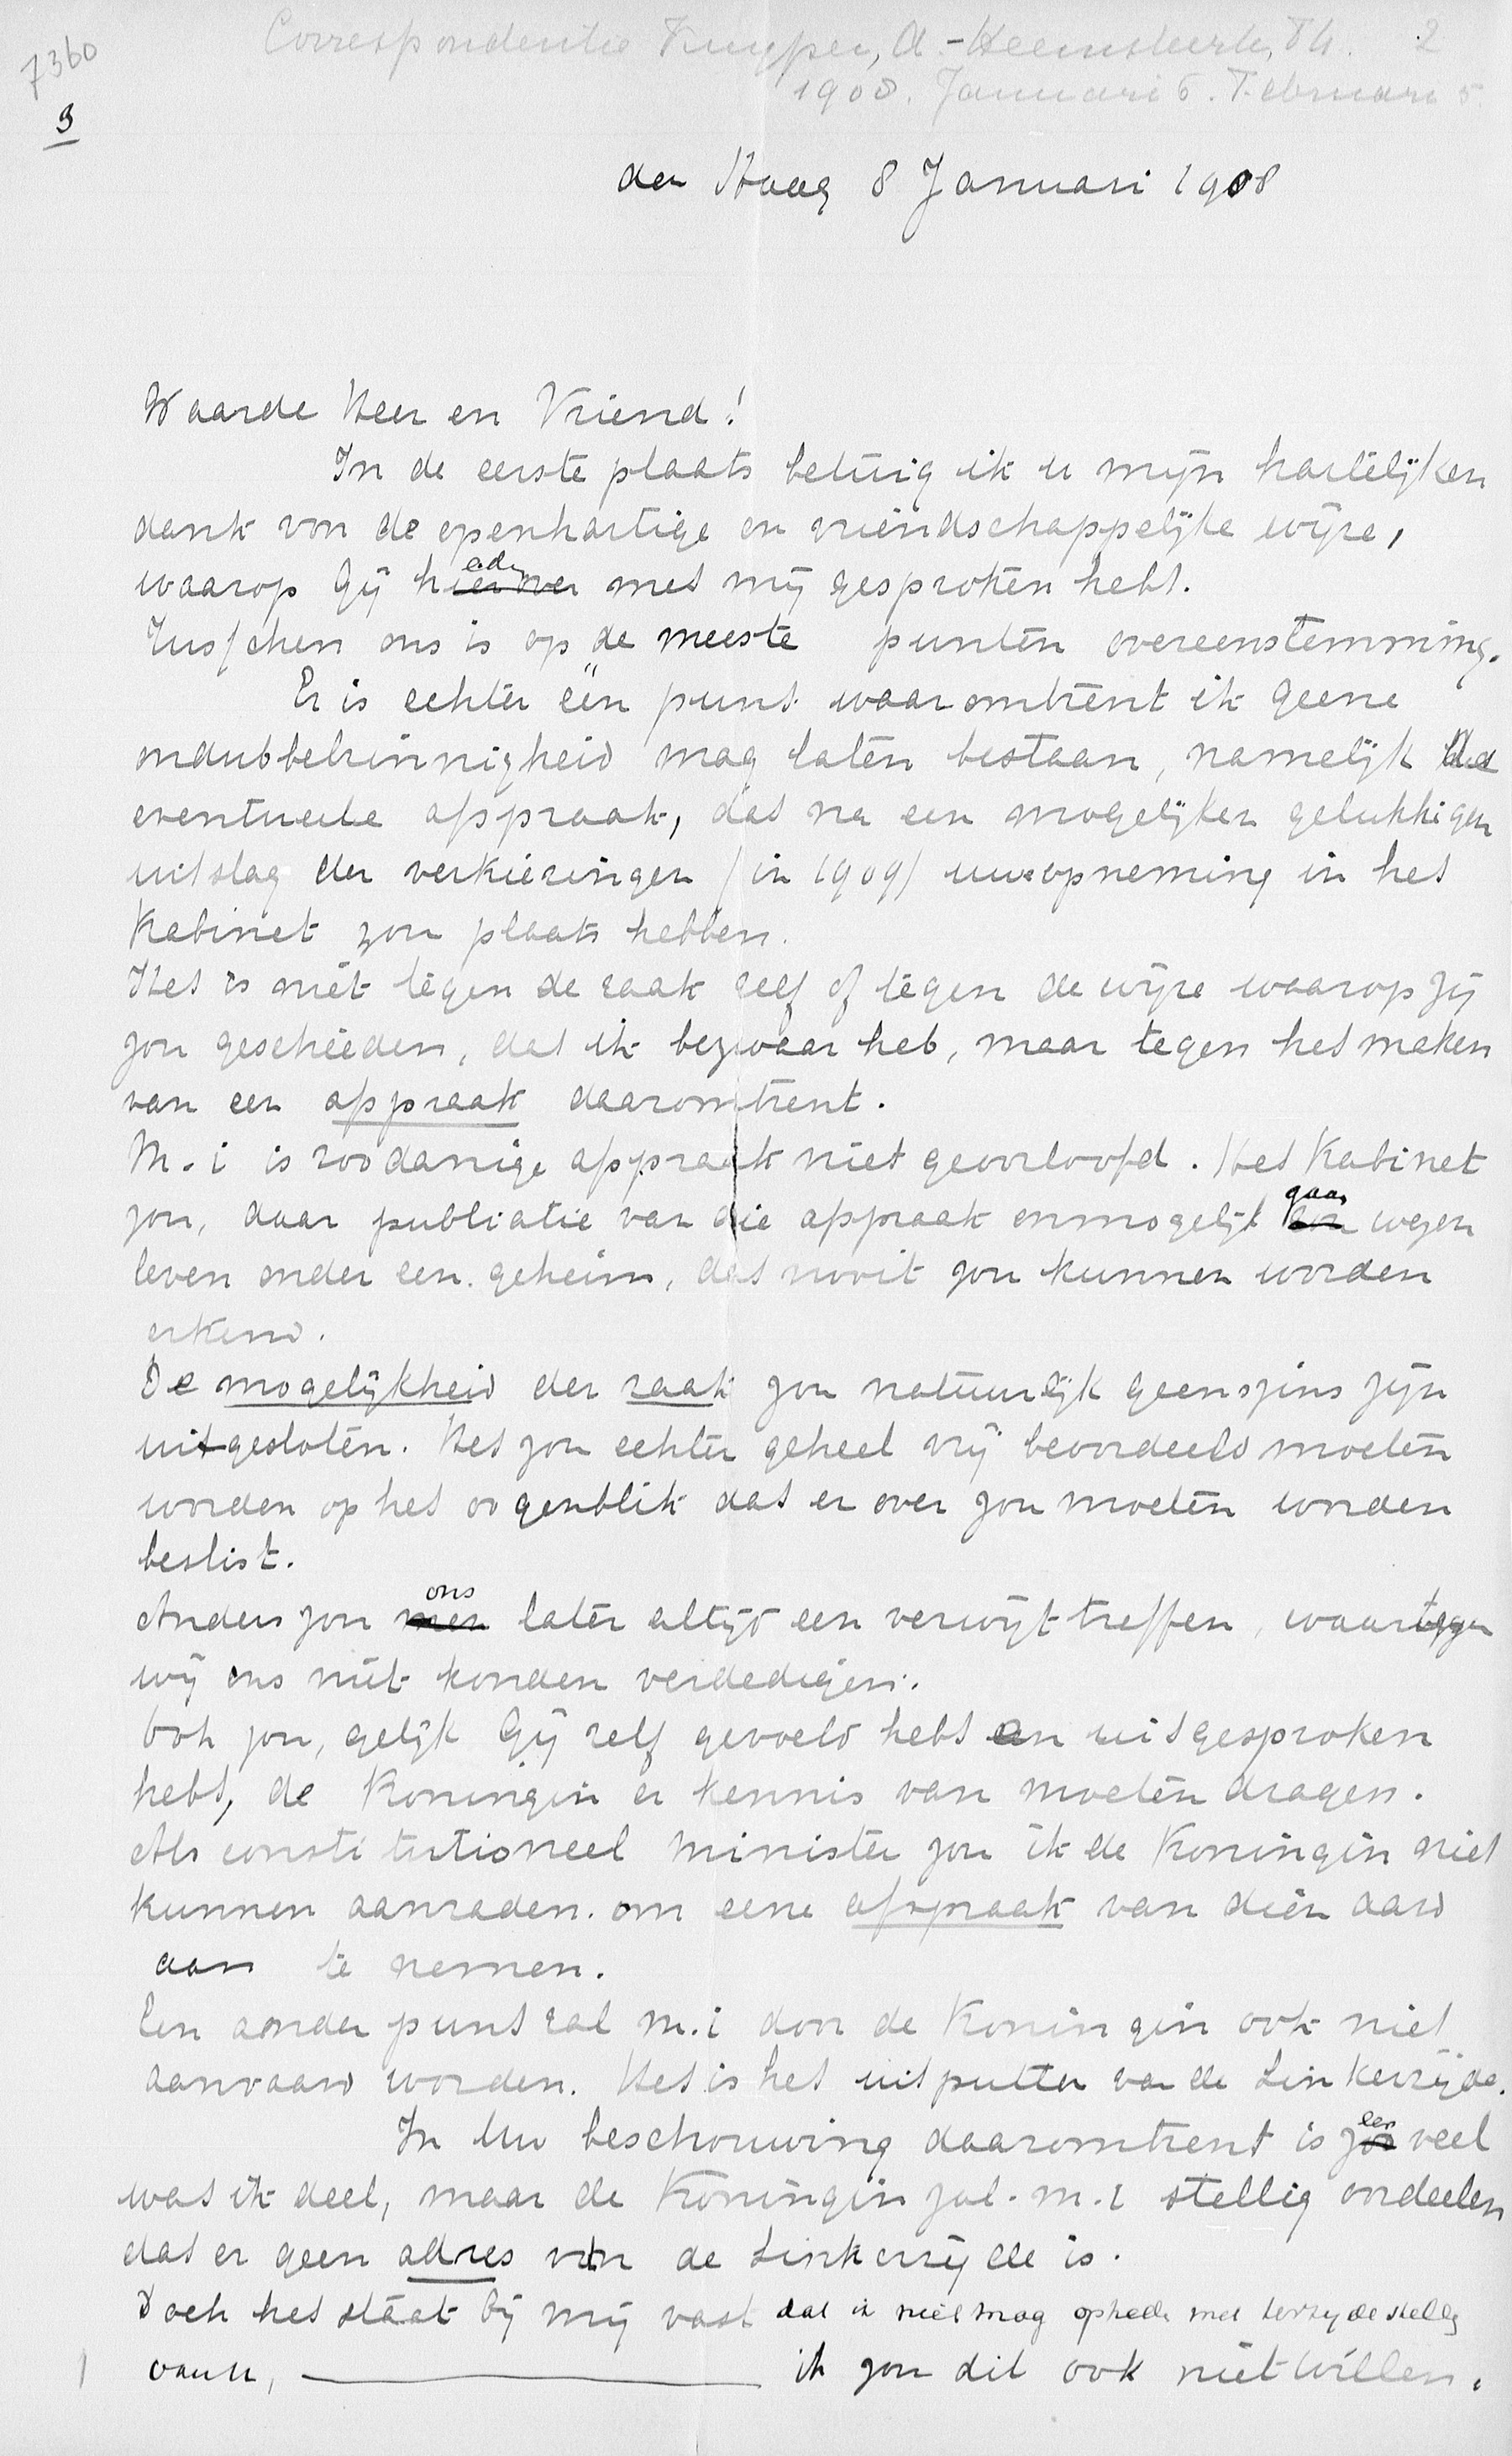 Correspondentie Kuyper, A. - Heemskerk, Th. 2
7360
1908. Januari 6. Februari 5.
9
den Haag 8 Januari 1908
Waarde Heer en Vriend!
In de eerste plaats betuig ik u mijn hartelijken
dank von de openhartige en vriendschappelijke wijze,
waarop Gij heden met mij gesproken hebt.
Tusschen ons is op de meeste punten overeenstemming.
Er is echter één punt waaromtrent ik geene
ondubbelzinnigheid mag laten bestaan, namelijk de
eventueele afspraak, dat na een mogelijken gelukkigen
uitslag der verkiezingen (in 1909) uwe opneming in het
Kabinet zou plaats hebben.
Het is niet tegen de zaak zelf of tegen de wijze waarop zij
zou geschieden, dat ik bezwaar heb, maar tegen het maken
van een afspraak daaromtrent.
M.i is zoodanige afspraak niet geoorloofd. Het Kabinet
zou, daar publiatie van die afspraak onmogelijk gaan wezen
leven onder een geheim, dat nooit zou kunnen worden
erkend.
De mogelijkheid der zaak zou natuurlijk geenszins zijn
uitgesloten. Het zou echter geheel vrij beoordeeld moeten
worden op het oogenblik dat er over zou moeten worden
beslist.
Anders zou ons later altijd een verwijt treffen, waartegen
wij ons niet konden verdedigen.
Ook zou, gelijk Gij zelf gevoeld hebt en uitgesproken
hebt, de Koningin er kennis van moeten dragen.
Als constitutioneel minister zou ik de Koningin niet
kunnen aanraden om eene afspraak van dien aard
aan te nemen.
Een ander punt zal m.i door de Koningin ook niet
aanvaard worden. Het is het uitputten van de Linkerzijde.
In Uw beschouwing daaromtrent is zeer veel
wat ik deel, maar de Koningin zal m.i stellig oordeelen
dat er geen adres van de Linkerzijde is.
Doch het staat bij mij vast dat ik niet mag optreden met terzijdestelling
van u, ik zou dit ook niet willen.